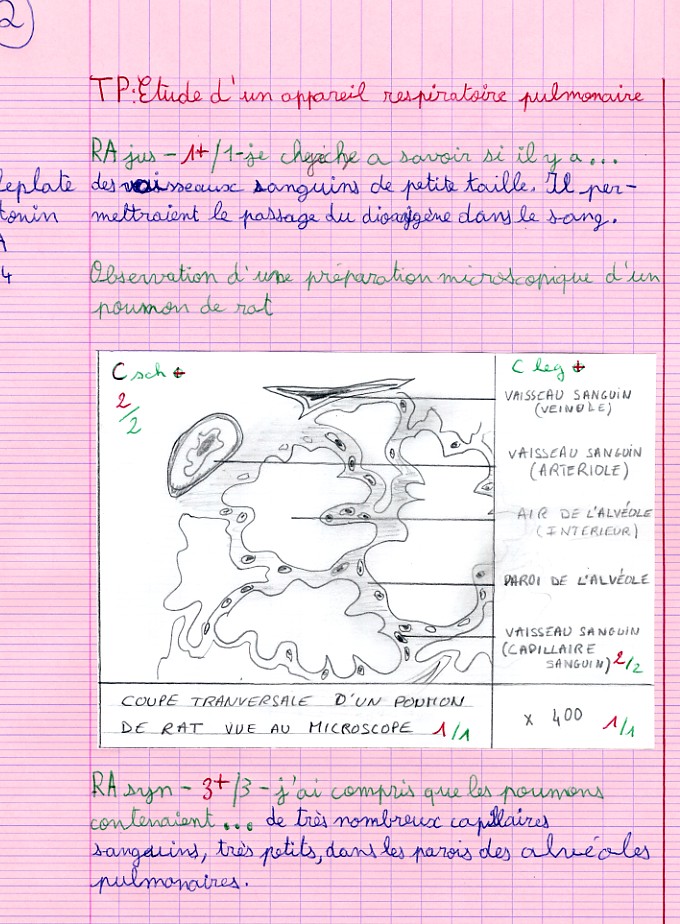 2
TP: Etude d'un appareil respiratoire pulmonaire
RA jus - 1+/1 - je cherche a savoir si il y a...
leplate des vaisseaux sanguins de petite taille. Il per-
tonin mettraient le passage du dioxygène dans le sang.
A
4 Observation d'une préparation microscopique d'un
poumon de rat
C sch +
2/2
C leg +
VAISSEAU SANGUIN
(VEINULE)
VAISSEAU SANGUIN
(ARTERIOLE)
AIR DE L'ALVÉOLE
(INTERIEUR)
PAROI DE L'ALVÉOLE
VAISSEAU SANGUIN
(CAPILLAIRE
SANGUIN) 2/2
COUPE TRANVERSALE D'UN POUMON
DE RAT VUE AU MICROSCOPE 1/1
x 400 1/1
RA syn - 3+/3 - j'ai compris que les poumons
contenaient... de très nombreux capillaires
sanguins, très petits, dans les parois des alvéoles
pulmonaires.